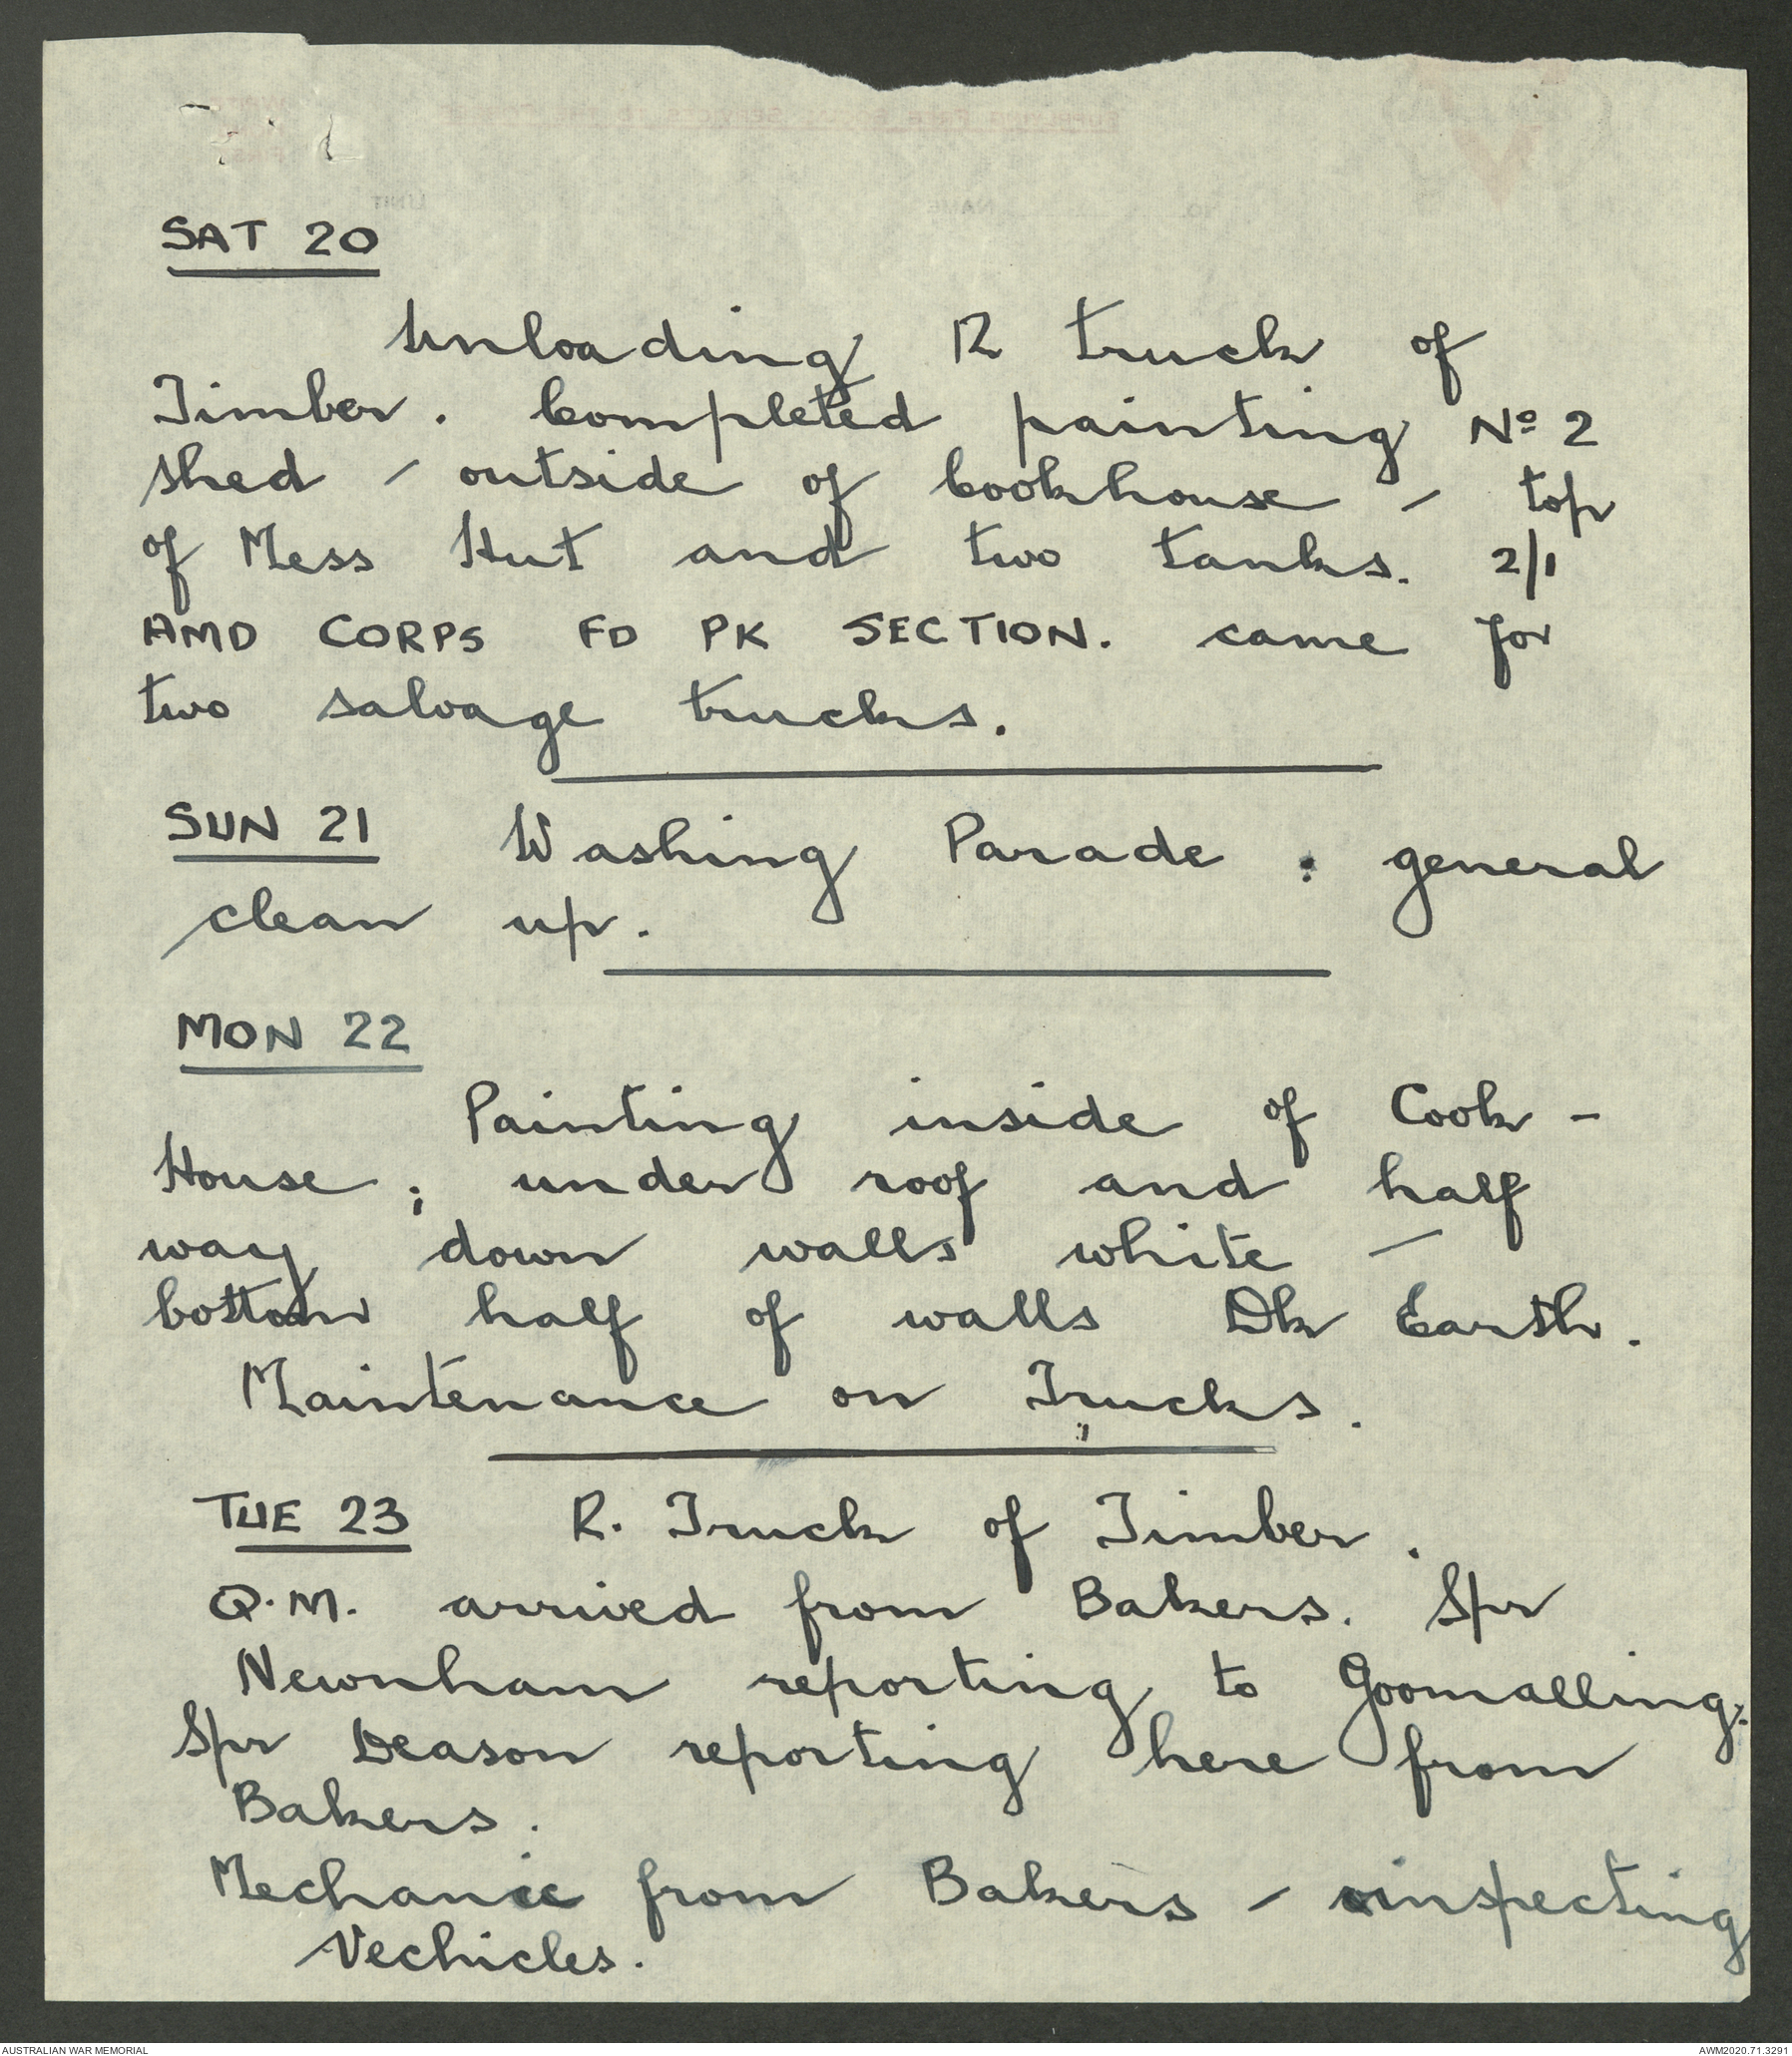 SAT 20
Unloading R truck of
Timber. Completed painting Nº 2
shed - outside of Cookhouse - top
of Mess Hut and two tanks. 2/1
AMD CORPS FD PK SECTION. came for
two salvage trucks.
SUN 21 Washing Parade : general
clean up.
MON 22
Painting inside of Cook -
House ; under roof and half
way down walls white -
bottom half of walls Dk Earth.
Maintenance on Trucks.
TUE 23 R. Truck of Timber.
Q.M. arrived from Bakers. Spr
Newnham reporting to Goomalling.
Spr Deason reporting here from
Bakers.
Mechanic from Bakers - inspecting
Vechicles.
AUSTRALIAN WAR MEMORIAL
AWM2020.71.3291